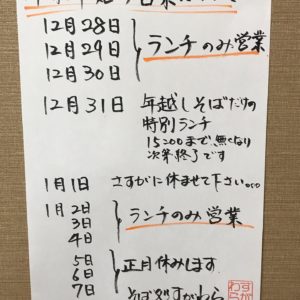 年末年始の営業について
12月28日
12月29日
12月30日
ランチのみ営業
12月31日
年越しそばだけの
特別ランチ
15:00まで無くなり
次第終了です
1月1日
さすがに休ませて下さい。。。
1月2日
3日
4日
ランチのみ営業
5日
6日
7日
正月休みします
そば処すがわら
すが
わら